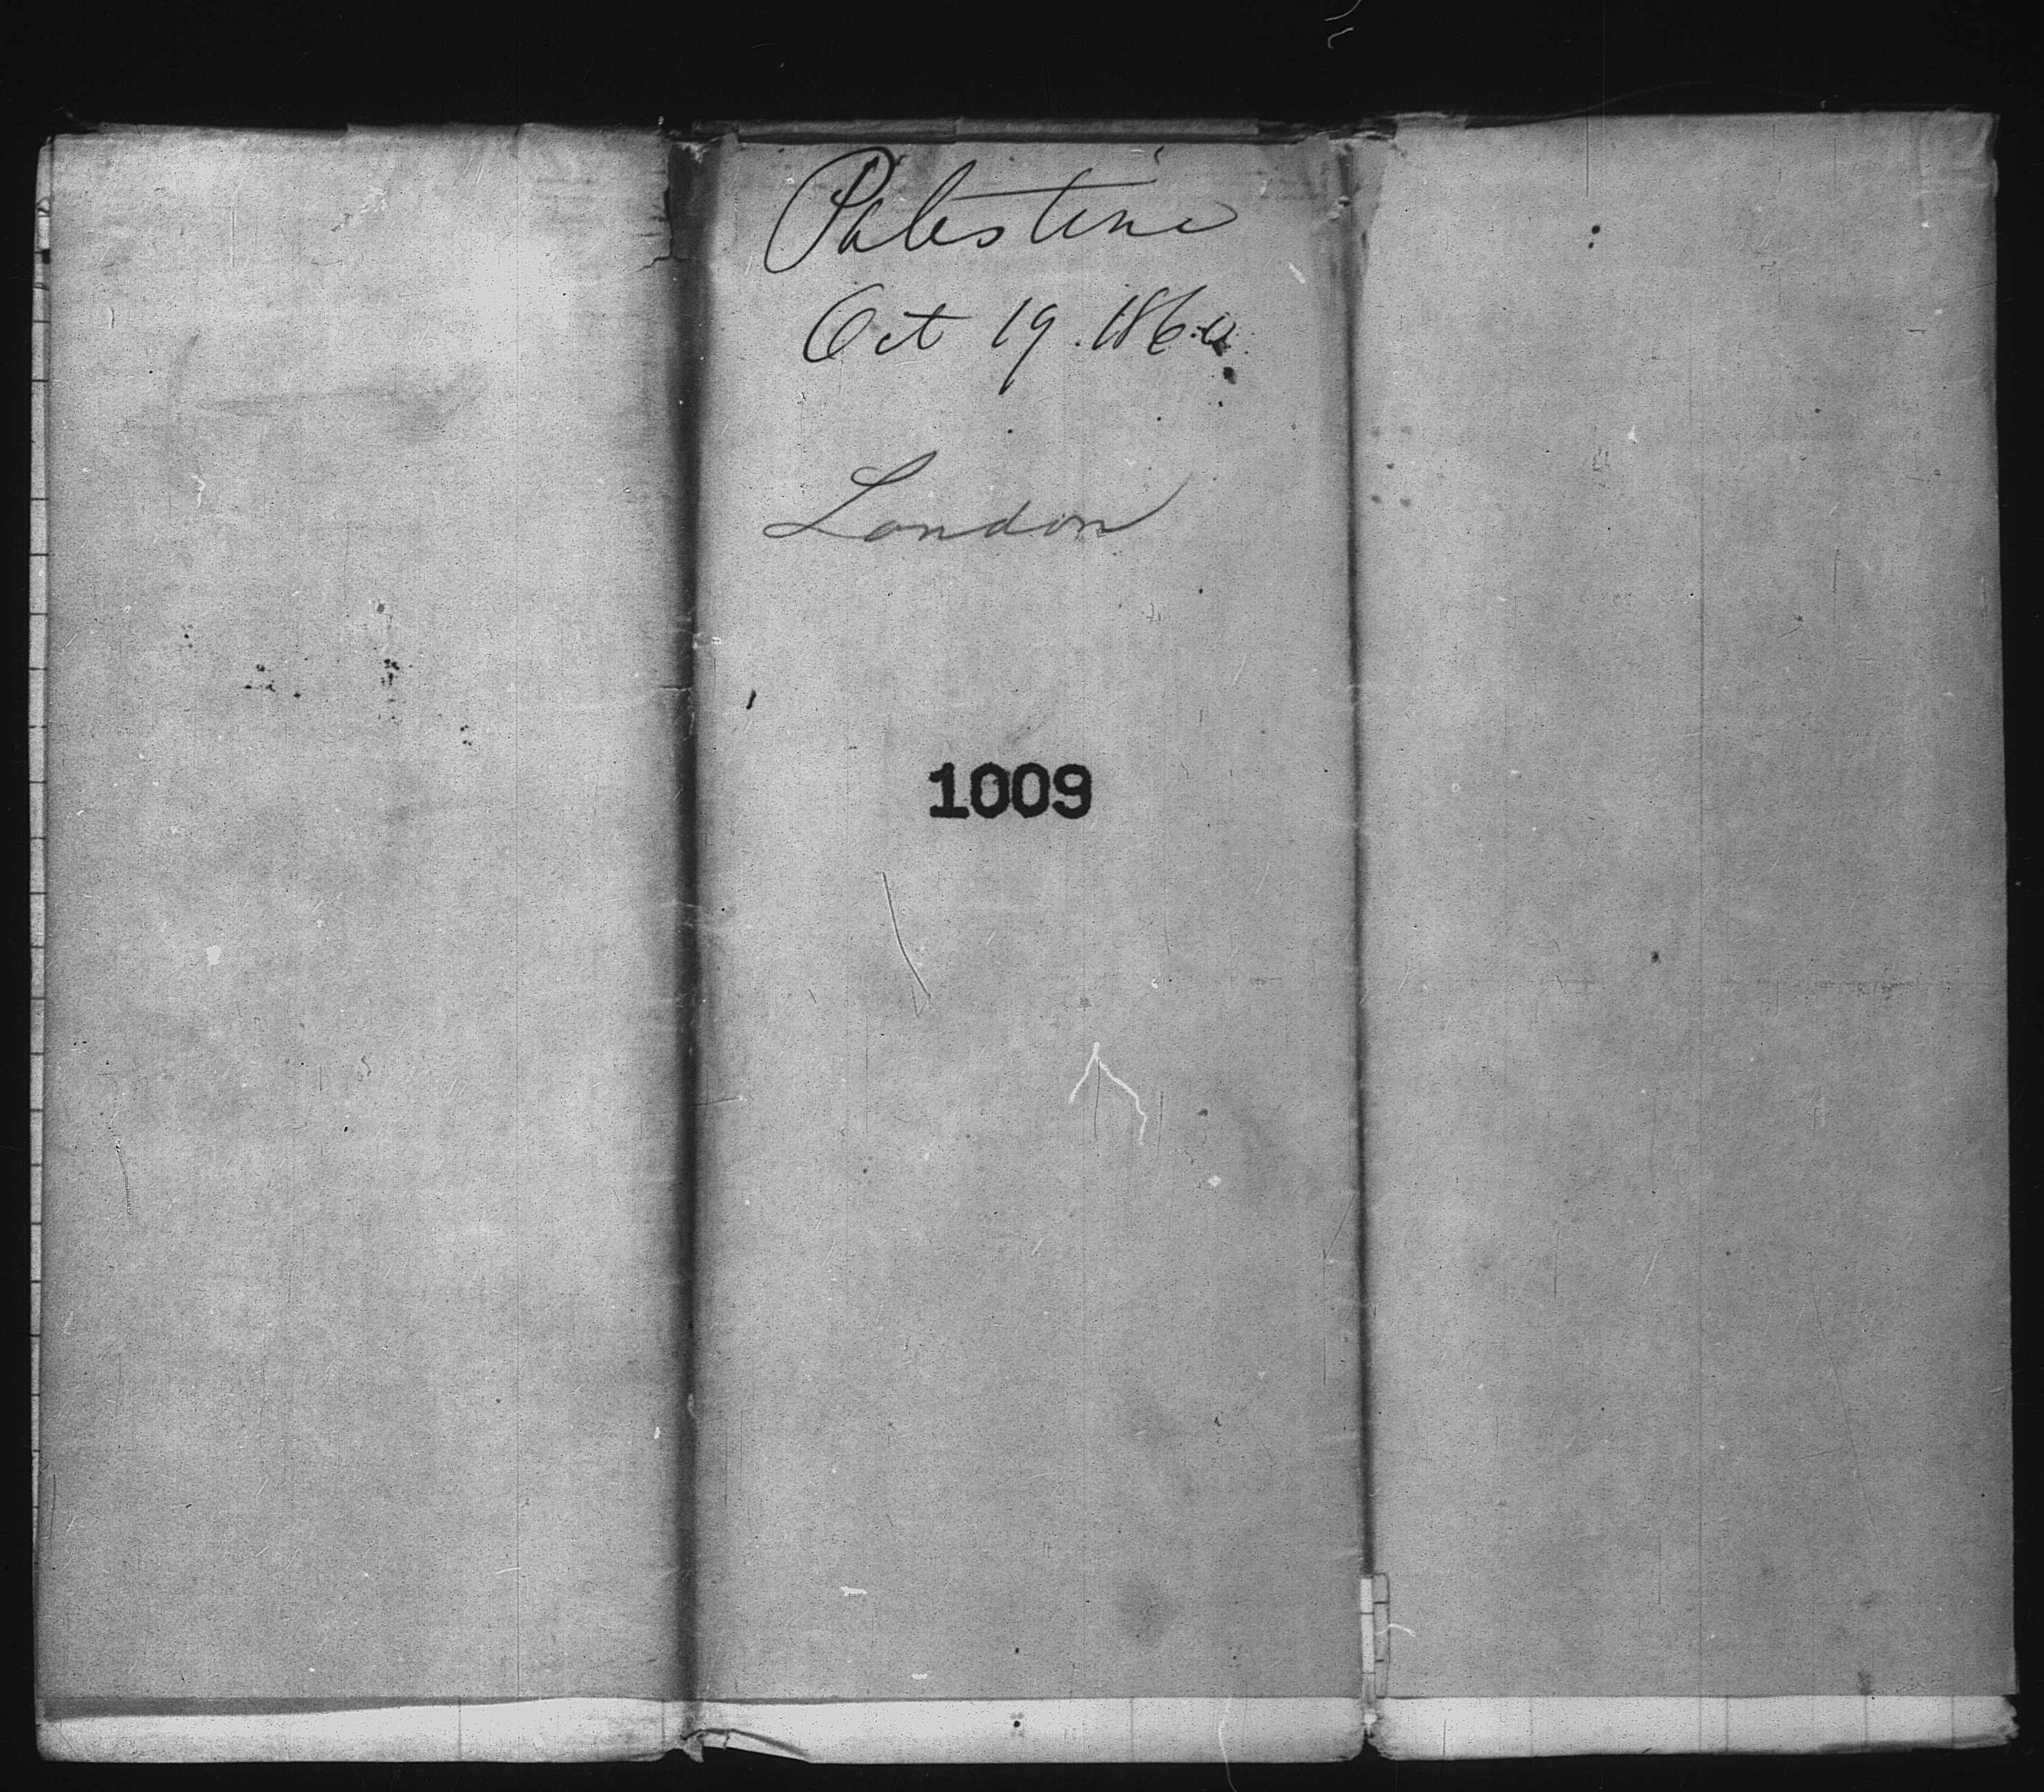 Palestine
Oct 19. 1860
London
1009